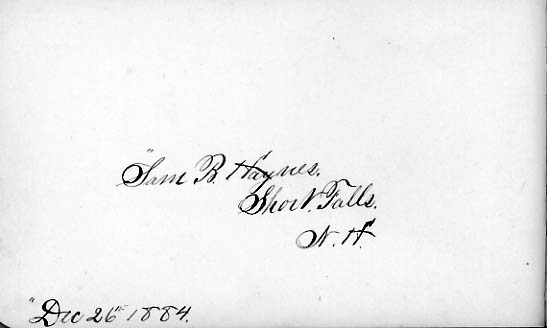 "Sam B. Haynes.
Short. Falls.
N. H.
"Dec 26" 1884.